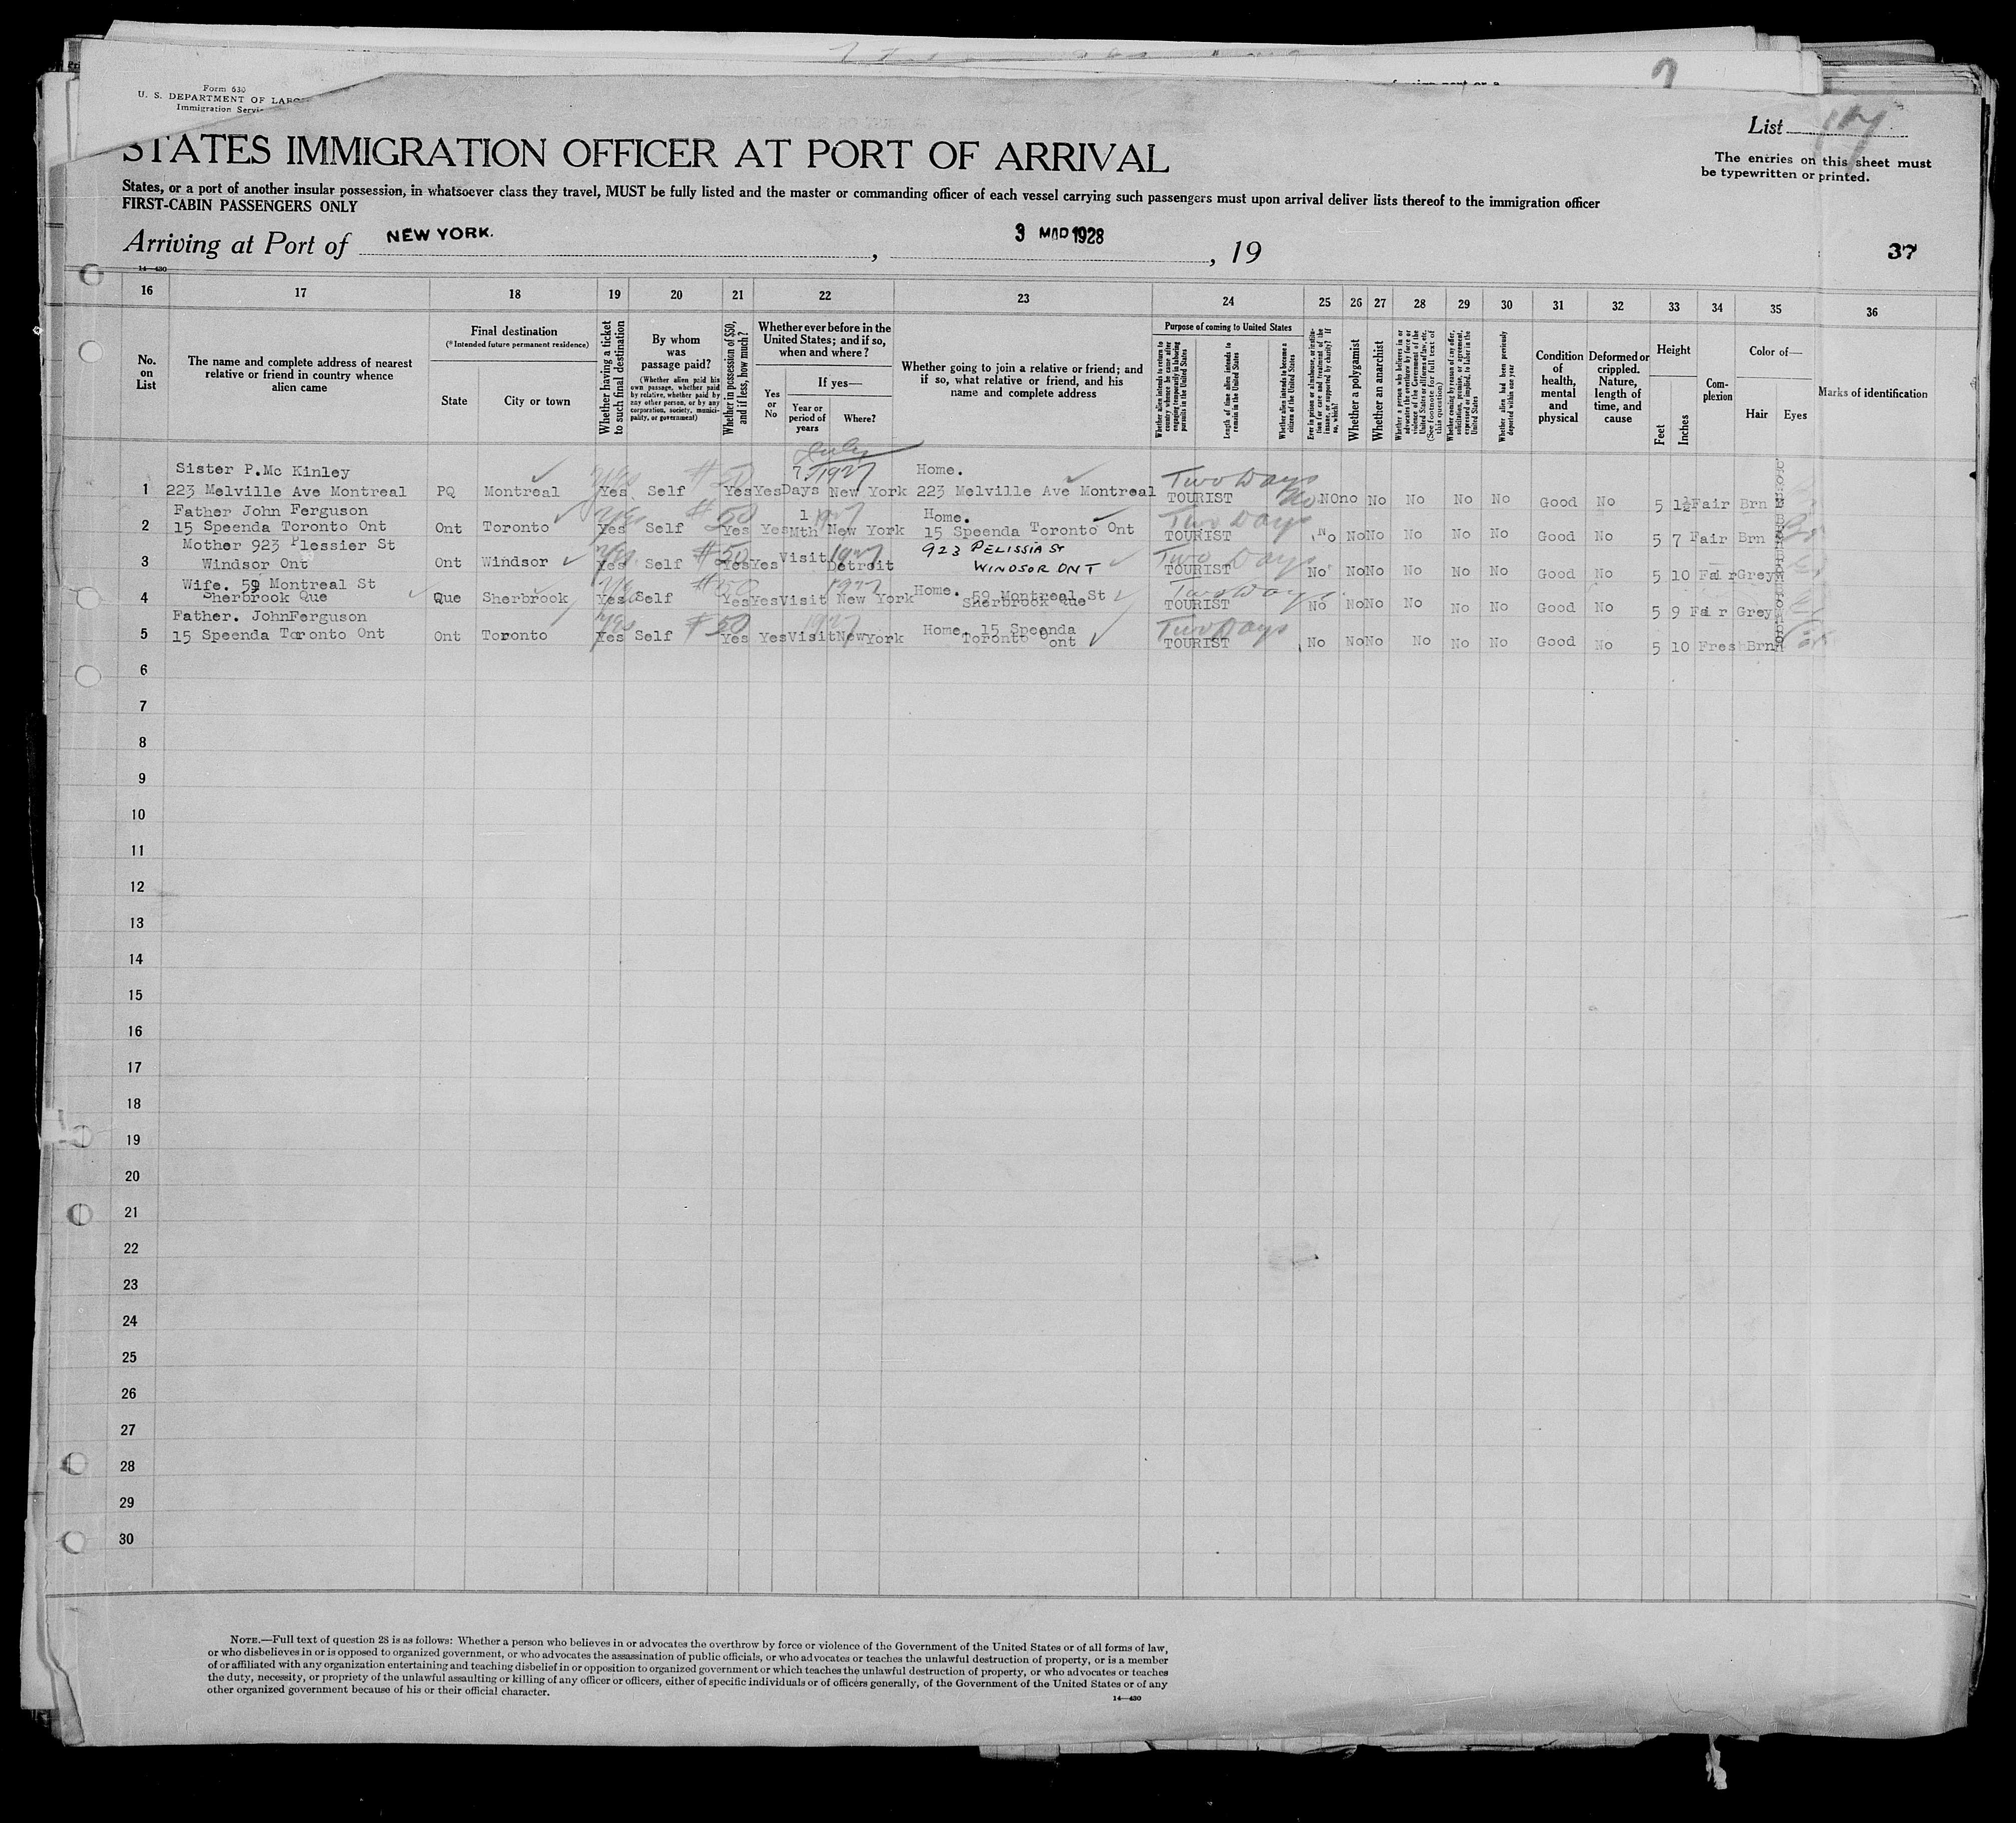 Form 630
U. S. DEPARTMENT OF LABOR
Immigration Service
STATES IMMIGRATION OFFICER AT PORT OF ARRIVAL
List
The entries on this sheet must
be typewritten or printed.
States, or a port of another insular possession, in whatsoever class they travel, MUST be fully listed and the master or commanding officer of each vessel carrying such passengers must upon arrival deliver lists thereof to the immigration officer
FIRST-CABIN PASSENGERS ONLY
Arriving at Port of NEW YORK. , 3 MAR 1928 , 19
37
14—430
16 17 18 19 20 21 22 23 24 25 26 27 28 29 30 31 32 33 34 35 36
No. on List
The name and complete address of nearest relative or friend in country whence alien came
Final destination
(* Intended future permanent residence)
State
City or town
Whether having a ticket to such final destination
By whom was passage paid?
(Whether alien paid his own passage, whether paid by relative, whether paid by any other person, or by any corporation, society, municipality, or government)
Whether in possession of $50, and if less, how much?
Whether ever before in the United States; and if so, when and where?
Yes or No
If yes—
Year or period of years
Where?
Whether going to join a relative or friend; and if so, what relative or friend, and his name and complete address
Purpose of coming to United States
Whether alien intends to return to country whence he came after engaging temporarily in laboring pursuits in the United States
Length of time alien intends to remain in the United States
Whether alien intends to become a citizen of the United States
Ever in prison or almshouse, or institution for care and treatment of the insane, or supported by charity? If so, which?
Whether a polygamist
Whether an anarchist
Whether a person who believes in or advocates the overthrow by force or violence of the Government of the United States or all forms of law, etc. (See footnote for full text of this question)
Whether coming by reason of any offer, solicitation, promise, or agreement, expressed or implied, to labor in the United States
Whether alien had been previously deported within one year
Condition of health, mental and physical
Deformed or crippled. Nature, length of time, and cause
Height
Feet
Inches
Complexion
Color of—
Hair
Eyes
Marks of identification
July
Sister P.Mc Kinley 7 1927 Home. Two Days
1 223 Melville Ave Montreal PQ Montreal Yes Self $50 Yes Yes Days New York 223 Melville Ave Montreal TOURIST No NO no No No No No Good No 5 1½ Fair Brn
Father John Ferguson 1 1927 Home. Two Days
2 15 Speenda Toronto Ont Ont Toronto Yes Self $50 Yes Yes Mth New York 15 Speenda Toronto Ont TOURIST No No No No No No Good No 5 7 Fair Brn
Mother 923 Plessier St 1927 923 PELISSIA ST Two Days
3 Windsor Ont Ont Windsor Yes Self $50 Yes Yes Visit Detroit WINDSOR ONT TOURIST No No No No No No Good No 5 10 Fair Grey
Wife. 59 Montreal St 1927 Home. 59 Montreal St Two Days
4 Sherbrook Que Que Sherbrook Yes Self $50 Yes Yes Visit New York Sherbrook Que TOURIST No No No No No No Good No 5 9 Fair Grey
Father. JohnFerguson 1927 Home. 15 Speenda Two Days
5 15 Speenda Toronto Ont Ont Toronto Yes Self $50 Yes Yes Visit NewYork Toronto Ont TOURIST No No No No No No Good No 5 10 Fresh Brn
6
7
8
9
10
11
12
13
14
15
16
17
18
19
20
21
22
23
24
25
26
27
28
29
30
NOTE.—Full text of question 28 is as follows: Whether a person who believes in or advocates the overthrow by force or violence of the Government of the United States or of all forms of law,
or who disbelieves in or is opposed to organized government, or who advocates the assassination of public officials, or who advocates or teaches the unlawful destruction of property, or is a member
of or affiliated with any organization entertaining and teaching disbelief in or opposition to organized government or which teaches the unlawful destruction of property, or who advocates or teaches
the duty, necessity, or propriety of the unlawful assaulting or killing of any officer or officers, either of specific individuals or of officers generally, of the Government of the United States or of any
other organized government because of his or their official character.
14—430